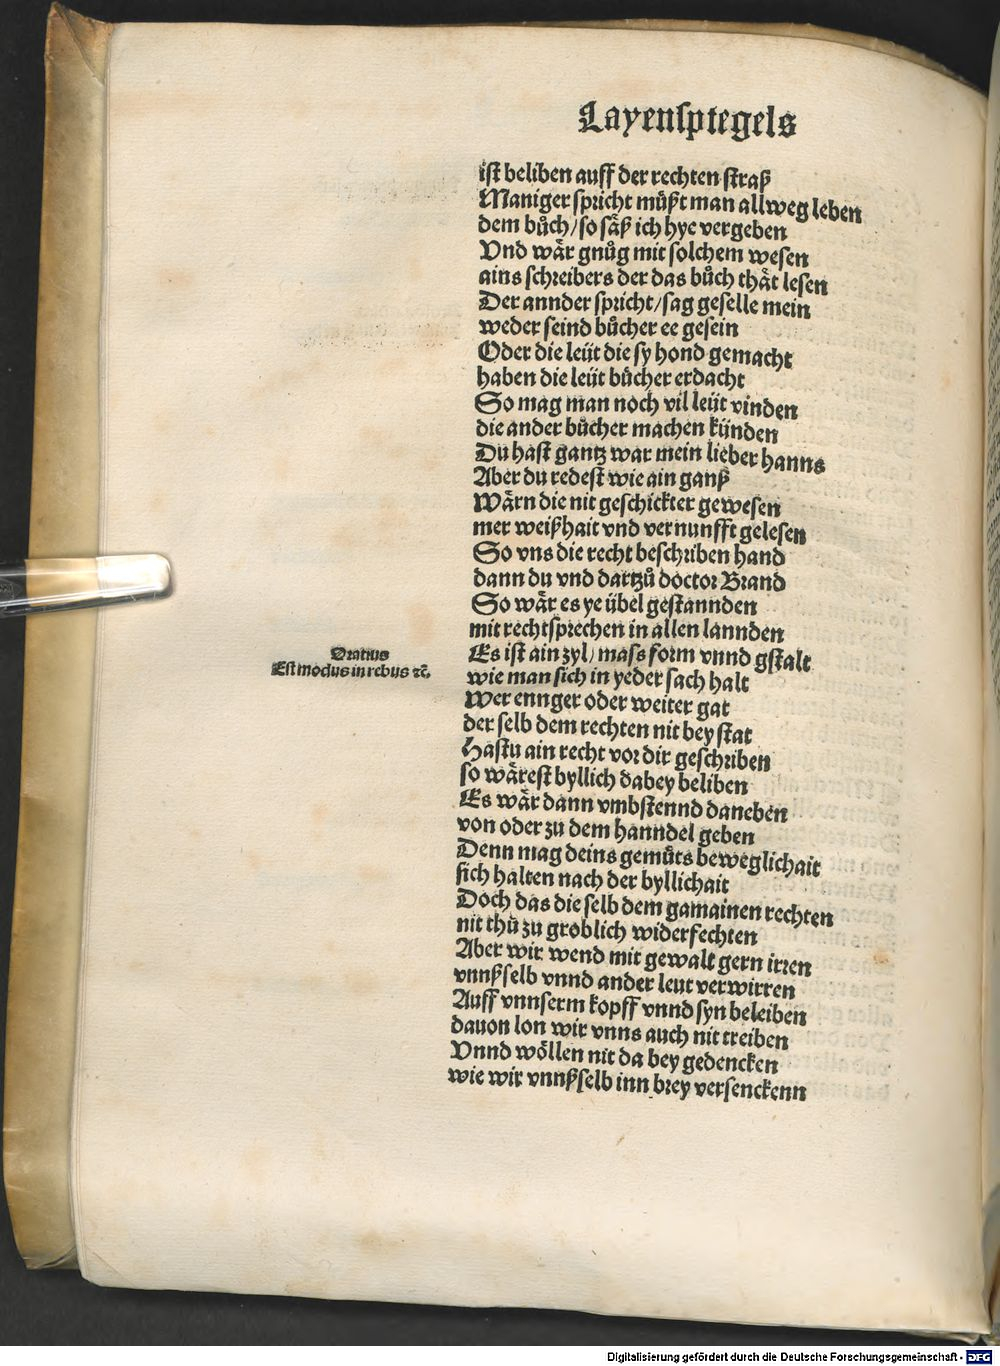 Layenspiegels
ist beliben auff der rechten straß
Maniger spricht müßt man allweg leben
dem bůch / so säß ich hye vergeben
Vnd wår gnůg mit solchem wesen
ains schreibers der das bůch thåt lesen
Der annder spricht / sag geselle mein
weder seind bůcher ee gesein
Oder die leüt die sy hond gemacht
haben die leüt bůcher erdacht
So mag man noch vil leüt vinden
die ander bůcher machen künden
Du hast gantz war mein lieber hanns
Aber du redest wie ain ganß
Wårn die nit geschickter gewesen
mer weißhait vnd vernunfft gelesen
So vns die recht beschriben hand
dann du vnd dartzů doctor Brand
So wår es ye übel gestannden
mit rechtsprechen in allen lannden
Oratius
Est modus in rebus ⁊c̃.
Es ist ain zyl / mass form vnnd gstalt
wie man sich in yeder sach halt
Wer ennger oder weiter gat
der selb dem rechten nit bey stat
Hastu ain recht vor dir geschriben
so wårest byllich dabey beliben
Es wår dann vmbstennd daneben
von oder zu dem hanndel geben
Denn mag deins gemůts beweglichait
sich halten nach der byllichait
Doch das die selb dem gamainen rechten
nit thů zu groblich widerfechten
Aber wir wend mit gewalt gern irren
vnnßselb vnnd ander leut verwirren
Auff vnnserm kopff vnnd syn beleiben
dauon lon wir vnns auch nit treiben
Vnnd wöllen nit da bey gedencken
wie wir vnnßselb inn brey versenckenn
Digitalisierung gefördert durch die Deutsche Forschungsgemeinschaft - DFG